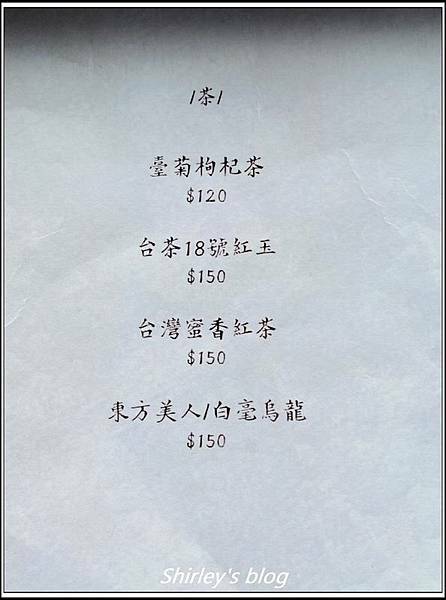 /茶/
臺菊枸杞茶
$120
台茶18號紅玉
$150
台灣蜜香紅茶
$150
東方美人/白毫烏龍
$150
Shirley's blog